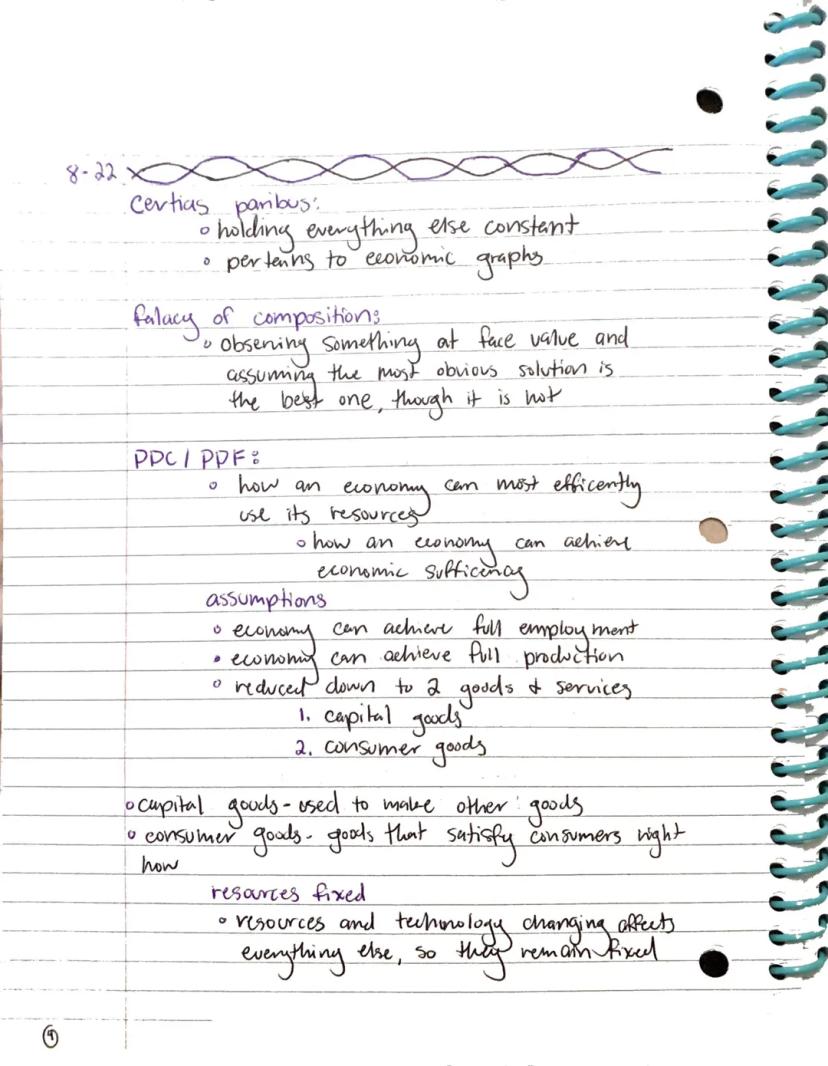 8-22
Certias paribus:
◦ holding everything else constant
◦ pertains to economic graphs
falacy of composition:
◦ observing something at face value and
assuming the most obvious solution is
the best one, though it is not
PPC / PPF:
◦ how an economy can most efficently
use its resources
◦ how an economy can achieve
economic sufficency
assumptions
◦ economy can achieve full employment
• economy can achieve full production
◦ reduced down to 2 goods & services
1. capital goods
2. consumer goods
◦ capital goods - used to make other goods
◦ consumer goods - goods that satisfy consumers right
now
resources fixed
◦ resources and technology changing affects
everything else, so they remain fixed
9